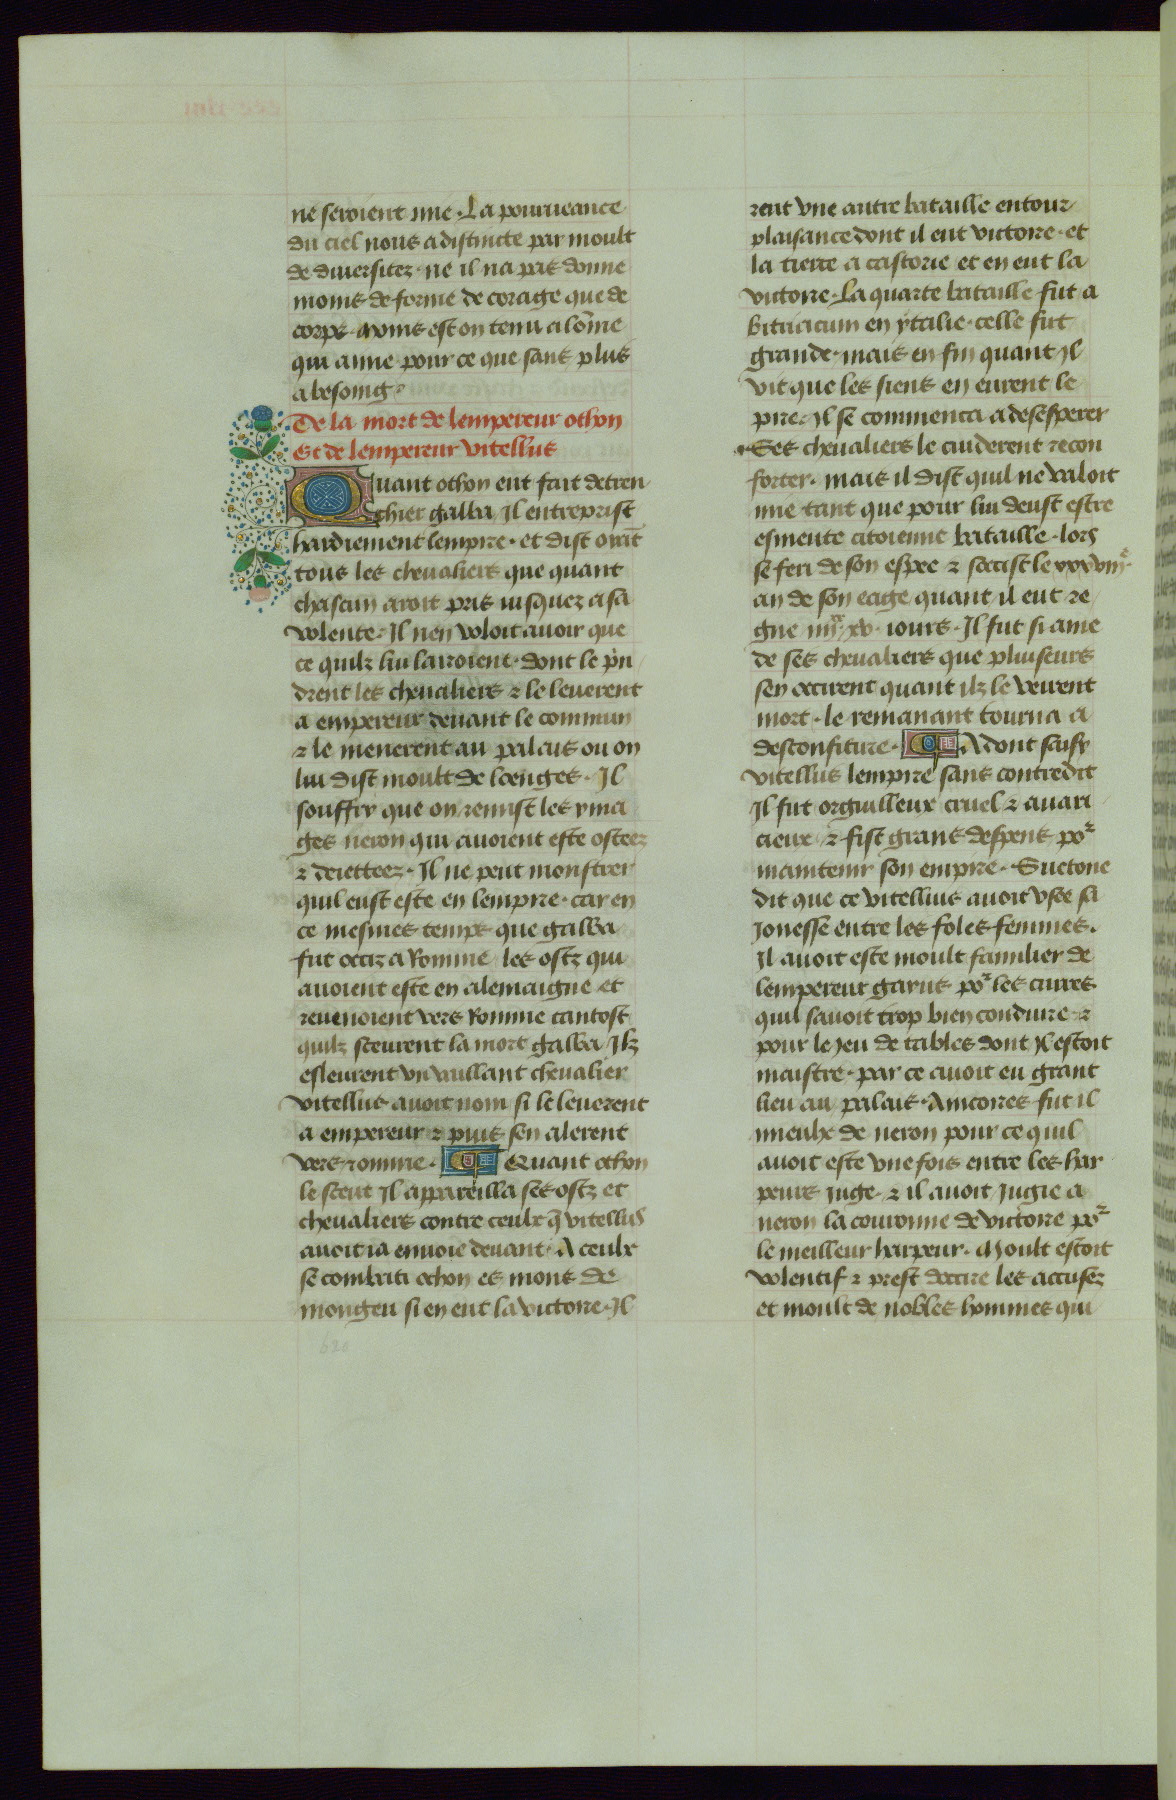 ne seroient mie · La pourueance
du ciel nous a distincte par moult
de diuersitez · ne il na pas donne
moins de forme de corage que de
corps · moins est on tenu a lo̅me
qui aime pour ce que sans plus
a besoing ·
De la mort de lempereur othon
Et de lempereur vitellus
Quant othon eut fait detren
chier galba Il entreprist
hardiement lempire · et dist oiāt
tous les cheualiers que quant
chascun aroit pris iusquez a sa
volente · Il nen voloit auoir que
ce quilz lui lairoient · dont le p̄n
drent les cheualiers ⁊ le leuerent
a empereur deuant le commun
⁊ le menerent au palais ou on
lui dist moult de loenges · Il
souffry que on remist les yma
ges neron qui auoient este ostees
⁊ deiettees · Il ne peut monstrer
quil eust este en lempire · car en
ce mesmes temps que galba
fut occiz a Romme les ostz qui
auoient este en alemaigne et
reuenoient vers Romme tantost
quilz sceurent la mort galba Ilz
esleurent vn vaillant cheualier
vitellus auoit nom si le leuerent
a empereur ⁊ puis sen alerent
vers romme · Quant othon
le sceut Il appareilla ses ostz et
cheualiers contre ceulx q̄ vitellus
auoit ia enuoie deuant · A ceulx
se combati othon es mons de
mongeu si en eut la victoire · Il
rent vne autre bataille entour
plaisance dont il eut victoire · et
la tierce a castorie et en eut la
victoire · La quarte bataille fut a
bituacum en ytalie · celle fut
grande · mais en fin quant Il
vit que les siens en eurent le
pire · Il se commenca a desesperer
Ses cheualiers le cuiderent recon
forter · mais il dist quil ne valoit
mie tant que pour lui deust estre
esmeute citoienne bataille · lors
se feri de son espee ⁊ soccist le xxxviiiᵉ
an de son eage quant il eut re
gne iiiiˣˣ xv · iours · Il fut si ame
de ses cheualiers que pluiseurs
sen occirent quant ilz le veirent
mort · le remanant tourna a
desconfiture · Adont saisy
vitellus lempire sans contredit
Il fut orguilleux cruel ⁊ auari
cieux ⁊ fist grans despens poᷣ
maintenir son empire · Suetone
dit que ce vitellius auoit vsee sa
Jonesse entre les foles femmes ·
Il auoit este moult familier de
lempereur garus poᷣ les cures
quil sauoit trop bien conduire ⁊
pour le Jeu de tables dont Il estoit
maistre · par ce auoit eu grant
lieu au palais · Aincores fut il
mieulx de neron pour ce quil
auoit este vne fois entre les har
peurs Juge · ⁊ il auoit Jugie a
neron la couronne de victoire poᷣ
le meilleur harpeur · Moult estoit
volentif ⁊ prest doccire les accusez
et moult de nobles hommes qui
620